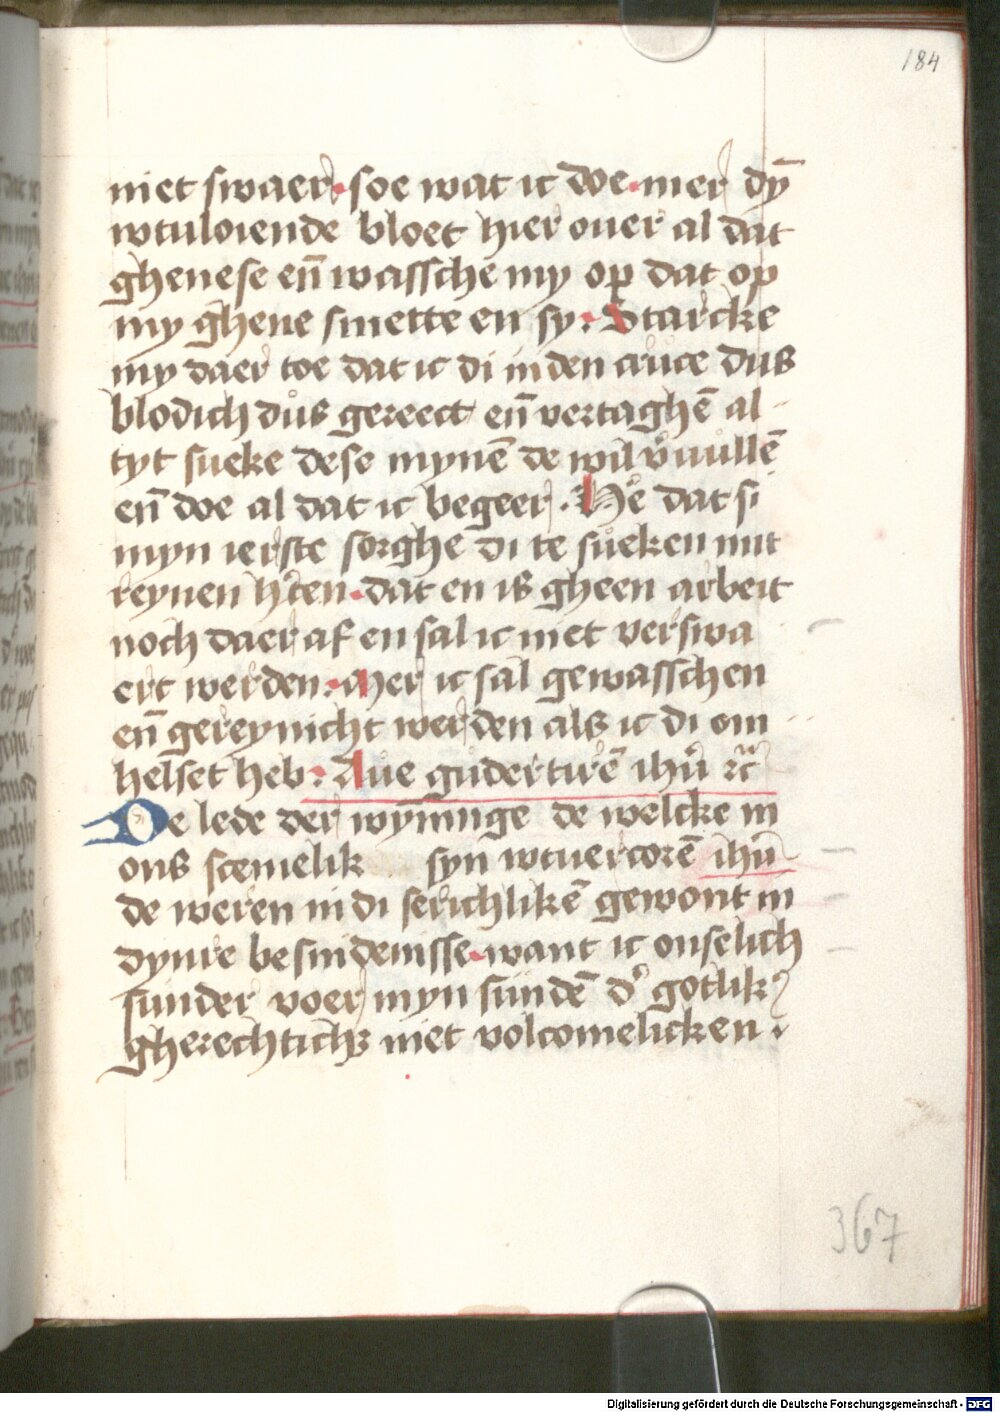 184
niet swaer. soe wat ic doe. mer dȳ
wtuloiende bloet hier ouer al dat
ghenese en̄ wassche my op dat op
my ghene smette en sy. Starcke
my daer toe dat ic di in den cruce dus
blodich dus gereect en̄ vertaghē al
tyt sueke dese mynē de wil v͛uullē
en̄ doe al dat ic begeer. He͛ dat si
myn ierste sorghe di te sueken mit
reynen h͛ten. dat en is gheen arbeit
noch daer af en sal ic niet verswa
ert werden. Mer ic sal gewasschen
en̄ gereynicht werden als ic di om
helset heb. Aue gudertirē ihū ꝛc̄
De lede der wȳnunge de welcke in
ons scemelik syn wtuercorē ihū
de weren in di serichlikē gewont in
dynre besnidenisse. want ic onselich
sunder voer myn sundē d͛ gotlik͛
gherechtichꝫ niet volcomelicken.
367
Digitalisierung gefördert durch die Deutsche Forschungsgemeinschaft - DFG